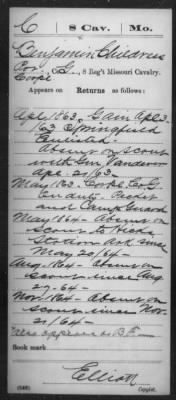 C 8 Cav. Mo.
Benjamin Childress
Co. G, 8 Reg't Missouri Cavalry.
Appears on
Returns as follows:
Apl 1863. Gain Apl 3
'63 Springfield
Enlisted
Absent on scout
with Gen Vandever
Apl. 21/63 -
May 1863. Corpl Co G
on duty. Picket
and Camp Guard
May 1864 - Absent on
scout to Hicks
Station Ark since
May 20/64 -
Aug 1864 - Absent on
scout since Aug
27-64 -
Nov. 1864 - Absent on
scout since Nov.
21/64 -
also appears as B. F.
Book mark
Elliott
(546) Copyist.